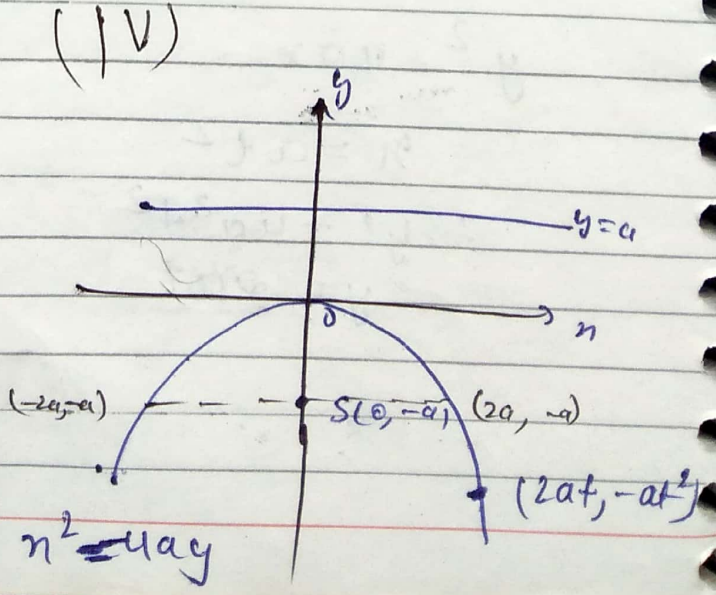 (IV)
y
y=a
0
x
(-2a,-a)
S(0, -a)
(2a, -a)
(2at, -at²)
x² = -4ay